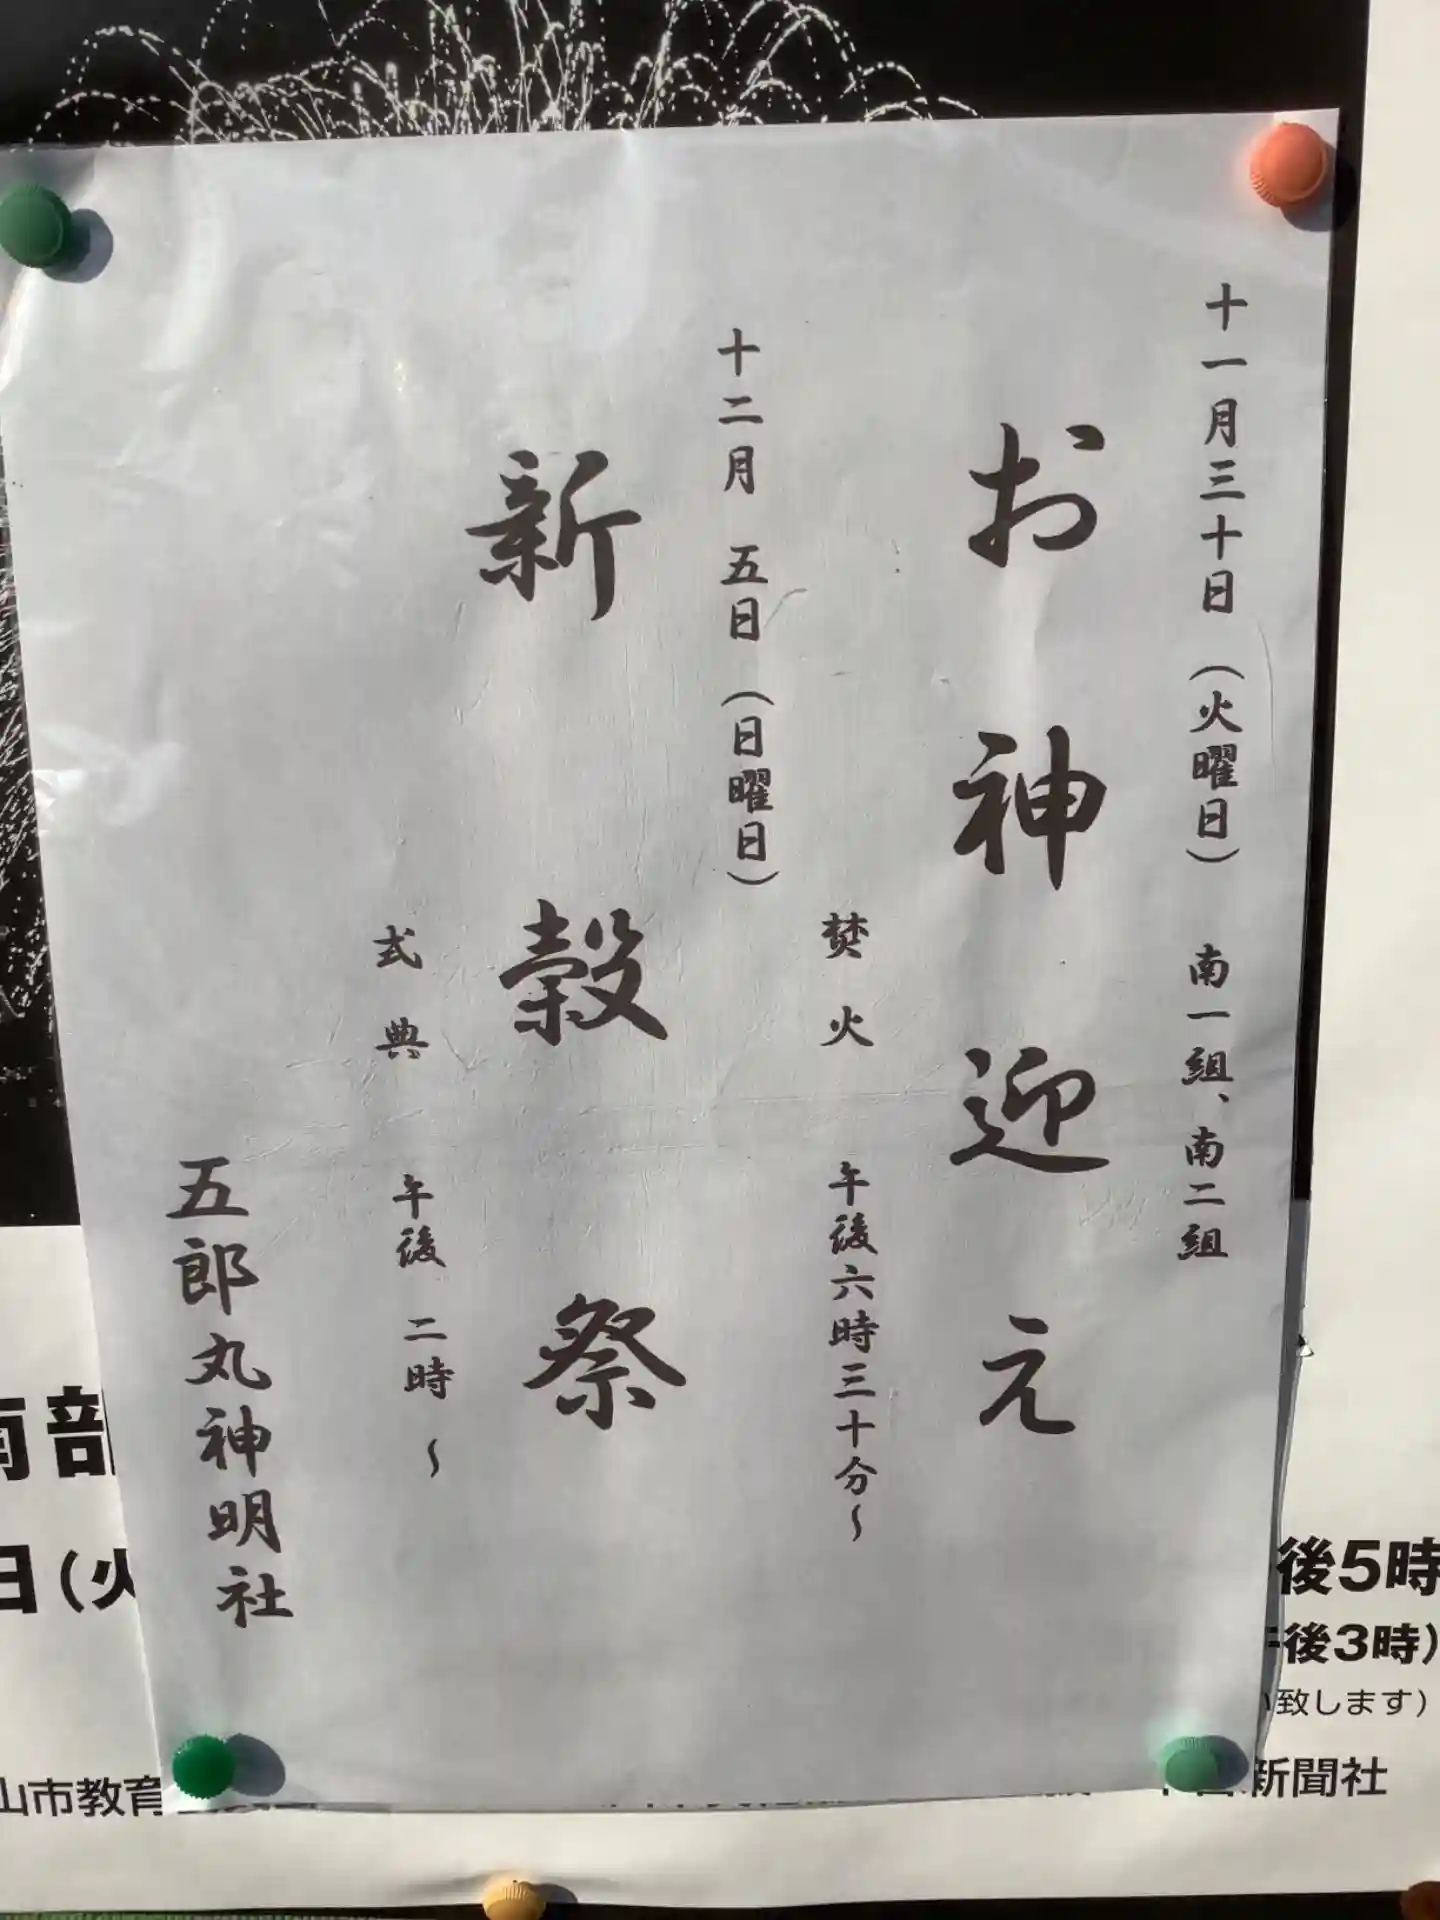 十一月三十日（火曜日） 南一組、南二組
お神迎え
焚火 午後六時三十分～
十二月 五日（日曜日）
新穀祭
式典 午後 二時 ～
五郎丸神明社
南部
日（火
後5時
後3時）
致します）
山市教育
新聞社